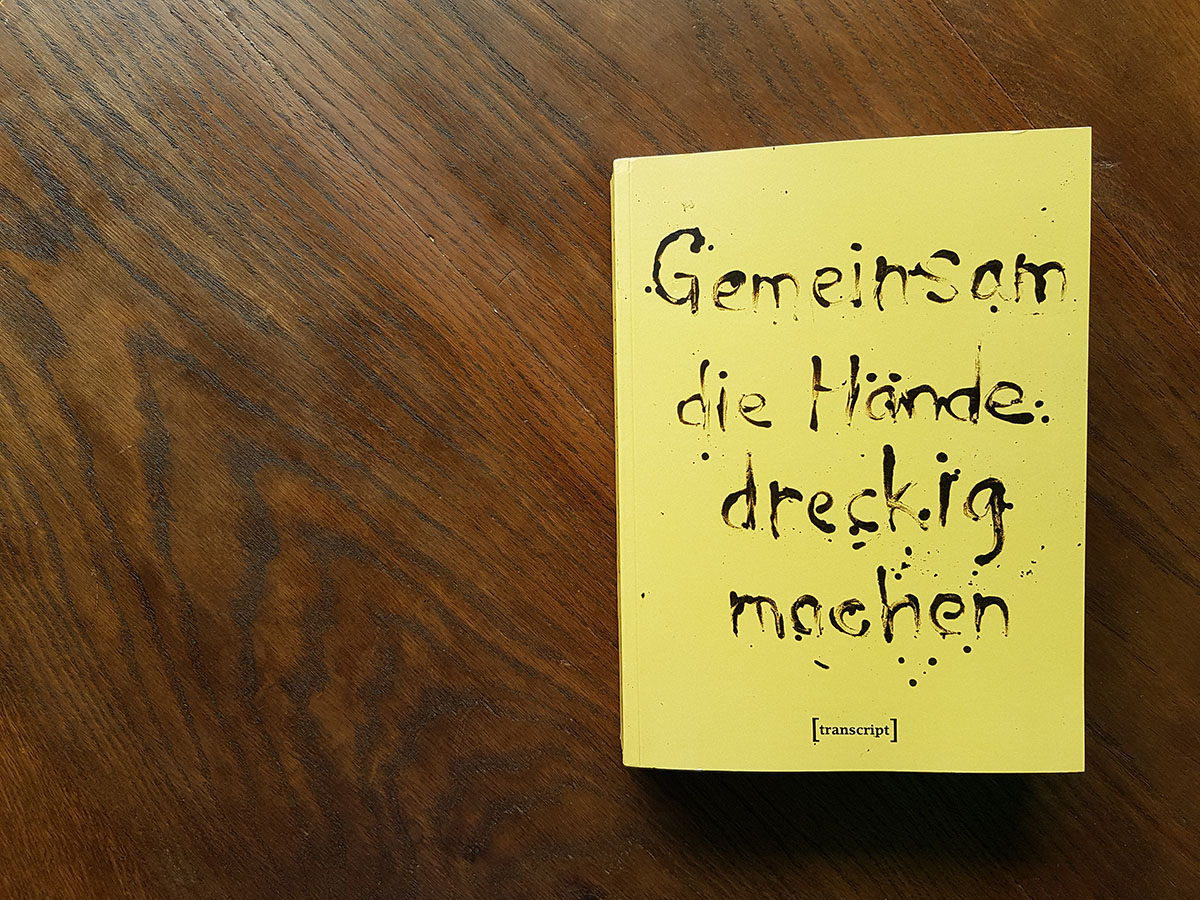 Gemeinsam
die Hände
dreckig
machen
[transcript]